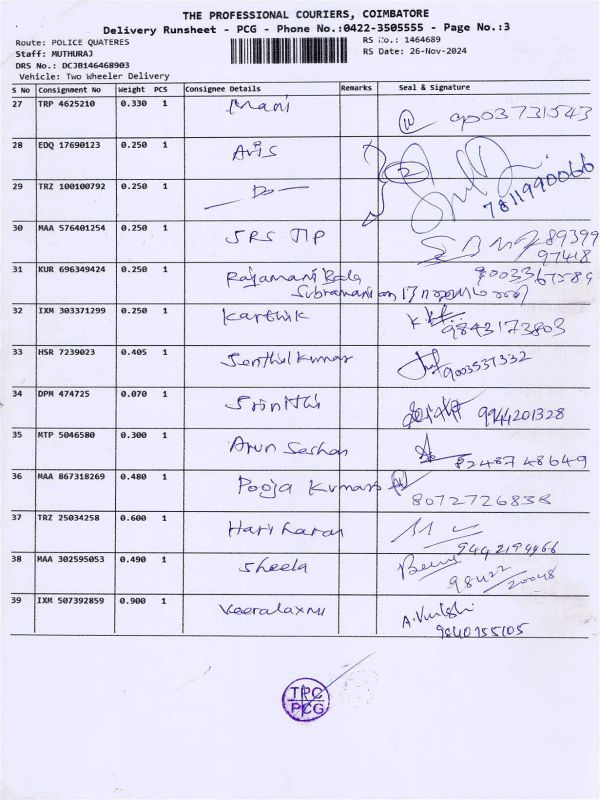 THE PROFESSIONAL COURIERS, COIMBATORE
Delivery Runsheet - PCG - Phone No.:0422-3505555 - Page No.:3
Route: POLICE QUATERES RS No.: 1464689
Staff: MUTHURAJ RS Date: 26-Nov-2024
DRS No.: DCJB146468903
Vehicle: Two Wheeler Delivery
S No Consignment No Weight PCS Consignee Details Remarks Seal & Signature
27 TRP 4625210 0.330 1 Mani 9003731543
28 EDQ 17690123 0.250 1 Avis
29 TRZ 100100792 0.250 1 — Do — 7811990066
30 MAA 576401254 0.250 1 SRS JIP 89399
97418
31 KUR 696349424 0.250 1 Rajamani Bala 9003367589
Subramanian
32 IXM 303371299 0.250 1 Karthik 9843173803
33 HSR 7239023 0.405 1 Senthilkumar 9003537332
34 DPM 474725 0.070 1 Srinithi 9944201328
35 MTP 5046580 0.300 1 Arun Seshan 8248748649
36 MAA 867318269 0.480 1 Pooja Kumar 8072726838
37 TRZ 25034258 0.600 1 Hariharan 9442194466
38 MAA 302595053 0.490 1 Sheela 98422
20048
39 IXM 507392859 0.900 1 Veeralaxmi
9840755105
TPC
PCG